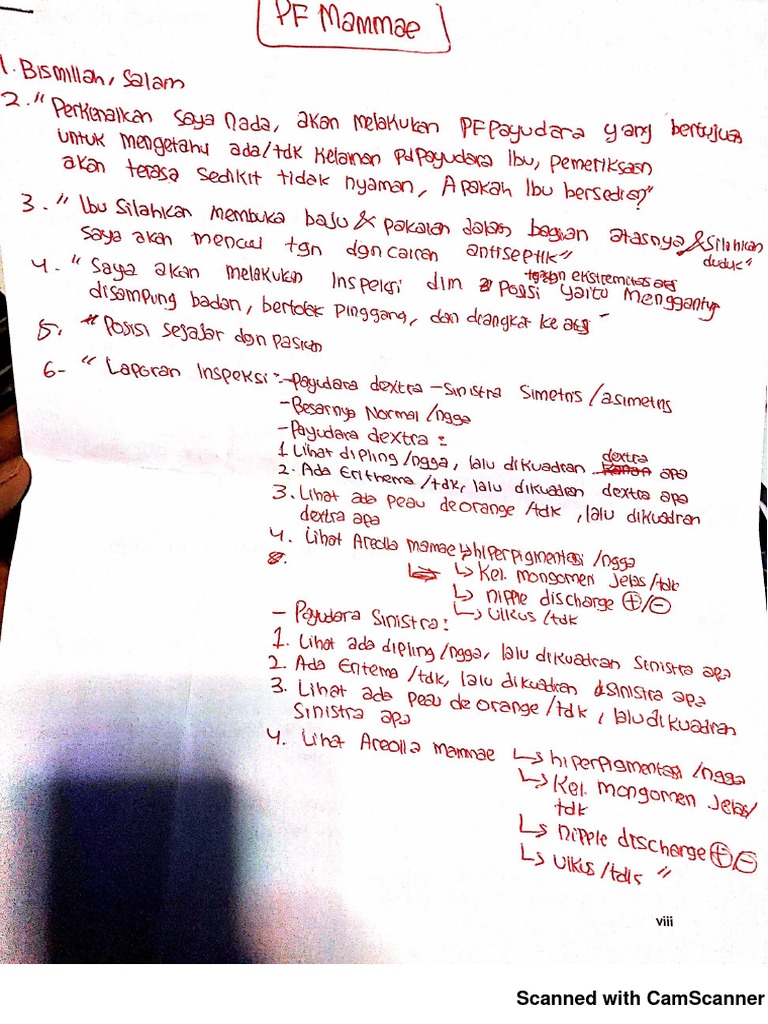 PF Mammae
1. Bismillah, Salam
2. "Perkenalkan saya Nada, akan melakukan PF Payudara yang bertujua
untuk mengetahu ada/tdk kelainan pd Payudara Ibu, pemeriksaan
akan terasa sedikit tidak nyaman, Apakah Ibu bersedia?"
3. "Ibu silahkan membuka baju & pakaian dalam bagian atasnya & silahkan
duduk"
saya akan mencuci tgn dgn cairan antiseptik"
4. "Saya akan melakukan Inspeksi dlm 3 Posisi yaitu Menggantung
disamping badan, bertolak pinggang, dan diangkat ke atas"
5. "Posisi sejajar dgn pasien
6- "Laporan Inspeksi :- Payudara dextra - Sinistra Simetris / asimetris
- Besarnya Normal /ngga
- Payudara dextra :
dextra
1. Lihat dipling /ngga, lalu dikuadran kanan apa
2. Ada Erithema /tdk, lalu dikuadran dextra apa
3. Lihat ada peau de orange /tdk , lalu dikuadran
dextra apa
4. Lihat Areolla mamae ↳ hiperpigmentasi /ngga
↳ Kel. mongomeri Jelas/tdk
↳ nipple discharge ⊕/⊖
↳ Ulkus /tdk
- Payudara Sinistra :
1. Lihat ada dipling /ngga, lalu dikuadran Sinistra apa
2. Ada Eritema /tdk, lalu dikuadran sinistra apa
3. Lihat ada peau de orange /tdk , lalu dikuadran
Sinistra apa
4. Lihat Areolla mammae ↳ hiperpigmentasi /ngga
↳ Kel. mongomeri Jelas/
tdk
↳ nipple discharge ⊕/⊖
↳ Ulkus /tdk "
viii
Scanned with CamScanner